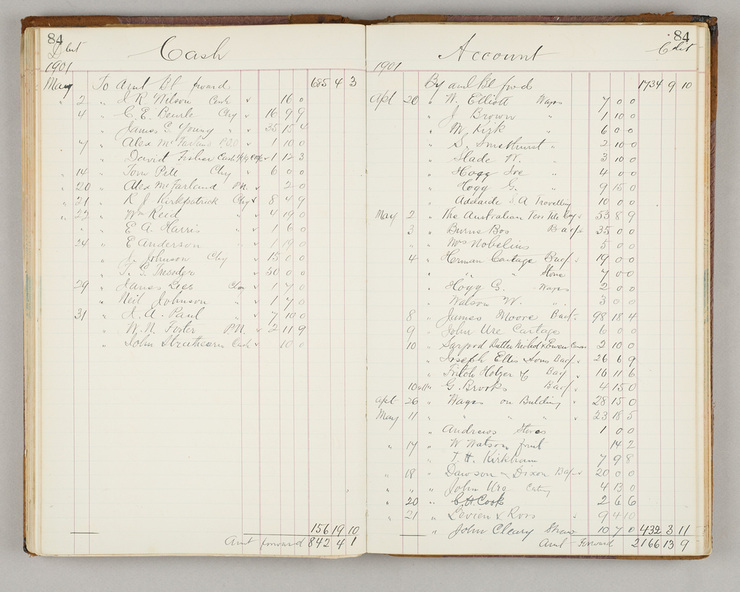 84
Cash
1901
May To Amt Bt forward 685 4 3
" 2 " J R Nelson Cash " 16 0
4 " C. E. Bourke Chq " 16 9 9
James G Young " 35 15 4
7 " Alex 1 10 0
David Fisher Cash 1 12 3
" 14 " Tom Pell Chq " 6 0 0
20 " Alex McFarland P.N. " 2 0
" 21 " R J Kirkpatrick Chq " 8 4 9
" 22 " Wm Reed " 4 19 0
" E A Harris " 1 6 0
24 " E Anderson " 1 19 0
" J. Johnson Chy 15 1 0
" T. G. 50 0 0
29 " James Lees " 1 7 0
" Neil Johnson " 1 7 0
31 " J. A. Paul " 7 10 0
" W. N. Foster P.N. " 2 11 9
" John Cash " 10 0
156 19 10
Amt forward 842 4 1
84
Account
1901
By amt Bt fwd 1734 9 10
Apl 20 " W. Elliott Wages 7 0 0
" J Brown " 1 0 0
" W. Kirk " 6 0 0
" S. Smethurst " 2 10 0
" Slade W. " 3 10 0
" Hogg Joe " 4 0 0
" Hogg G. " 9 15 0
" Adelaide S. A Travelling 10 0 0
May 2 " The Australian 53 8 9
3 " Burns Bros 35 0 0
" Wm Nobelius 5 0 0
4 " Herman Cartage 19 0 0
" " " Stores 7 0 0
" Hogg G. Wages 2 0 0
" Watson W. " 3 0 0
8 " James Moore 98 18 4
9 " John Ure Cartage 6 0 0
10 " Sargood Butler Nichol & Ewen 2 10 0
" Joseph Ellis & Sons 26 6 9
" Holzer & Co 16 11 6
10 " G. Brooks 4 15 0
Apl 26 " Wages on Building " 28 15 0
May 11 " " " " 23 18 5
" Andrews Stores 1 0 0
" 17 " W Watson fruit 14 2
" T. H. Kirkham 7 9 8
" 18 " Dawson & Dixon 20 0 0
" " John Ure 4 13 0
" 20 " C H Cook 2 6 6
" 21 " Levien & Ross 9 4 10
" John Cleary Straw 10 7 0 432 3 11
Amt Forward 2166 13 9